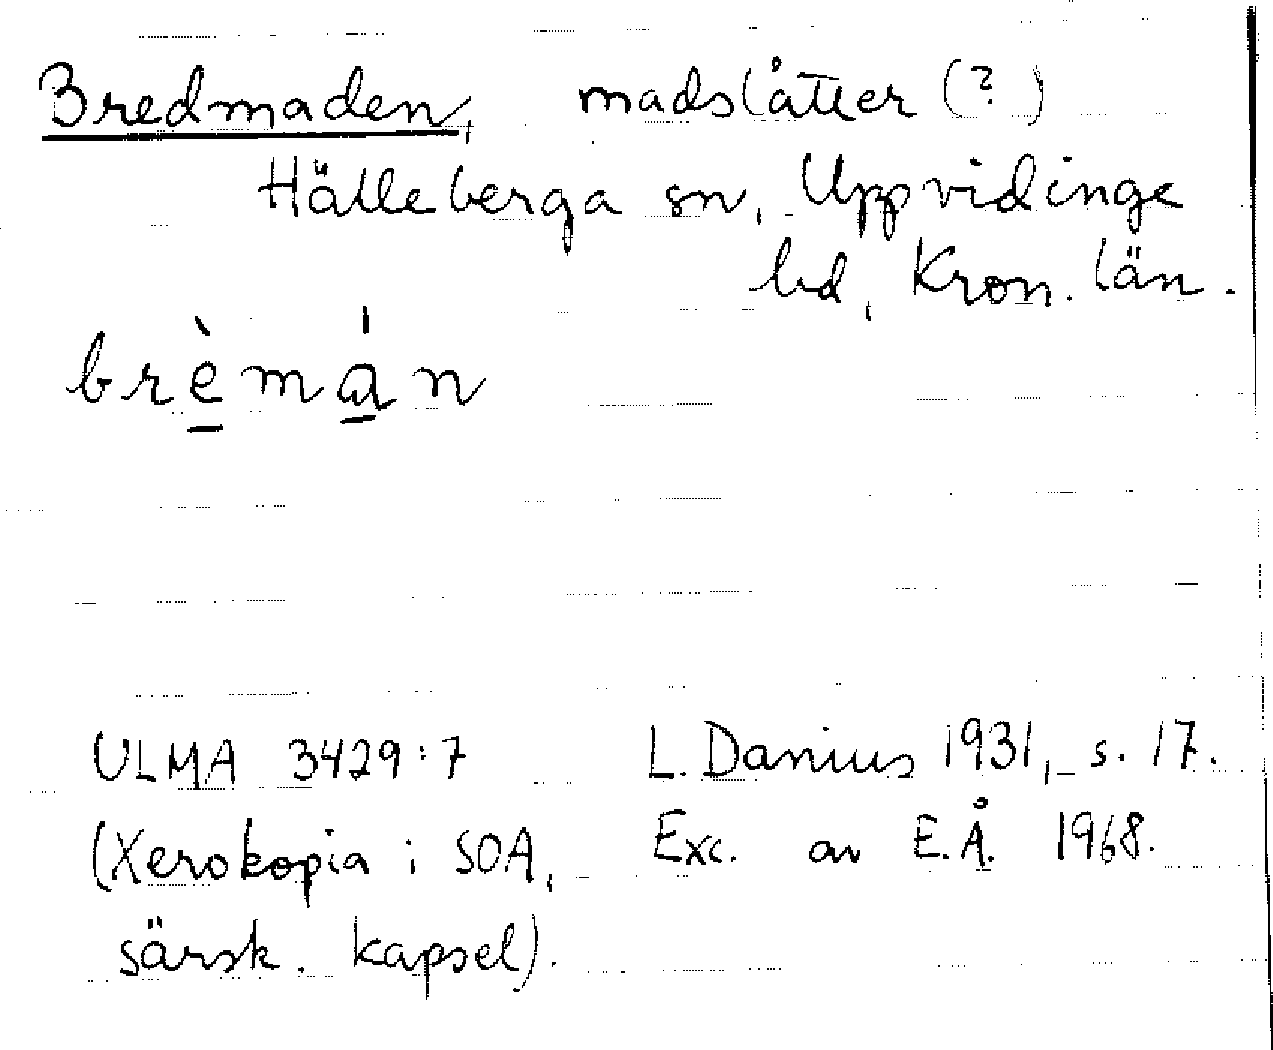 Bredmaden, madslåtter (?)
Hälleberga sn, Uppvidinge
hd, Kron. län.
brè̱má̱n
ULMA 3429:7 L. Danius 1931, s. 17.
(Xerokopia i SOA, Exc. av E.Å. 1968.
särsk. kapsel).